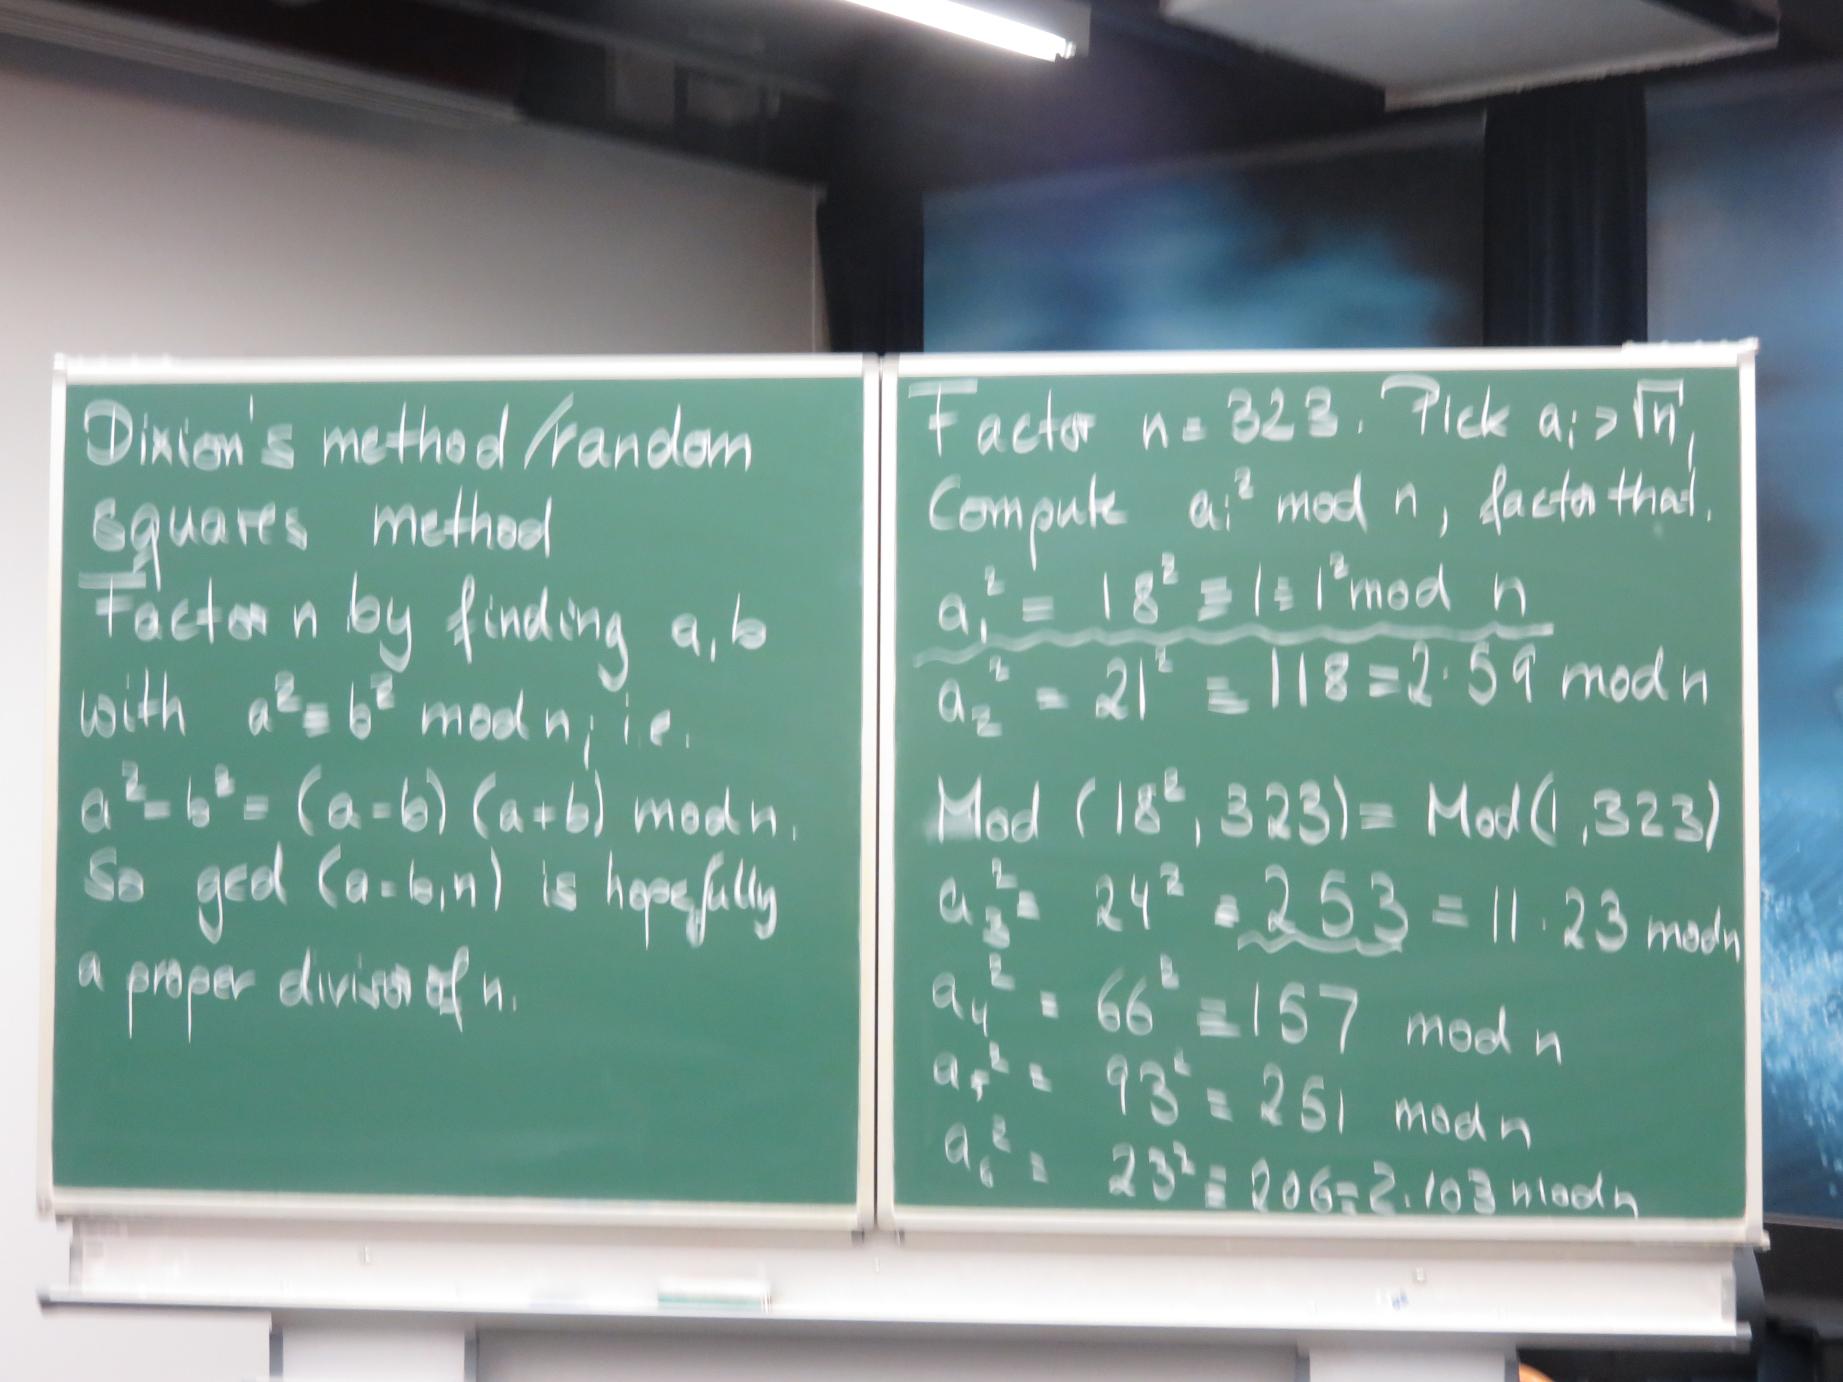 Dixion's method/random
squares method
Factor n by finding a, b
with a² ≡ b² mod n, i.e.
a² - b² = (a-b) (a+b) mod n.
So gcd (a-b, n) is hopefully
a proper divisor of n.
Factor n = 323. Pick aᵢ > √n,
Compute aᵢ² mod n, factor that.
a₁² = 18² ≡ 1 = 1² mod n
a₂² = 21² ≡ 118 = 2·59 mod n
Mod (18², 323) = Mod(1, 323)
a₃² = 24² ≡ 253 = 11·23 mod n
a₄² = 66² ≡ 157 mod n
a₅² = 93² ≡ 251 mod n
a₆² = 23² ≡ 206 = 2·103 mod n